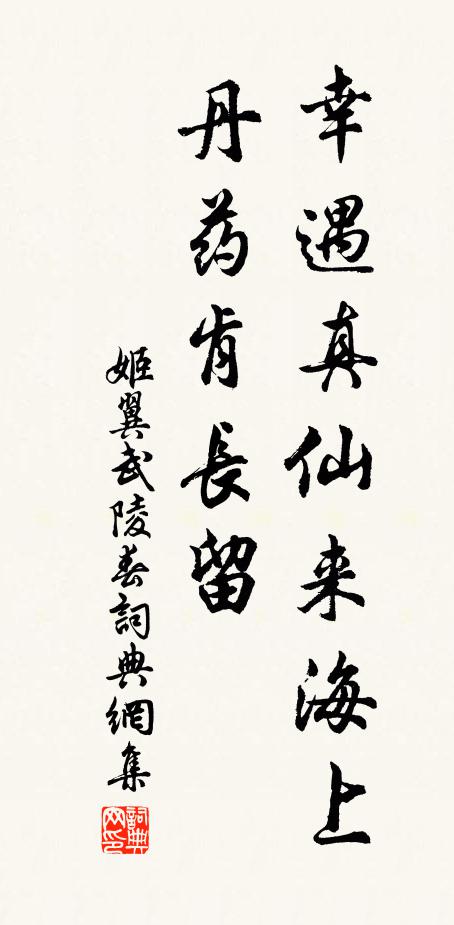 幸遇真仙来海上
丹药肯長留
姬翼武陵春詞典網集
詞典网印